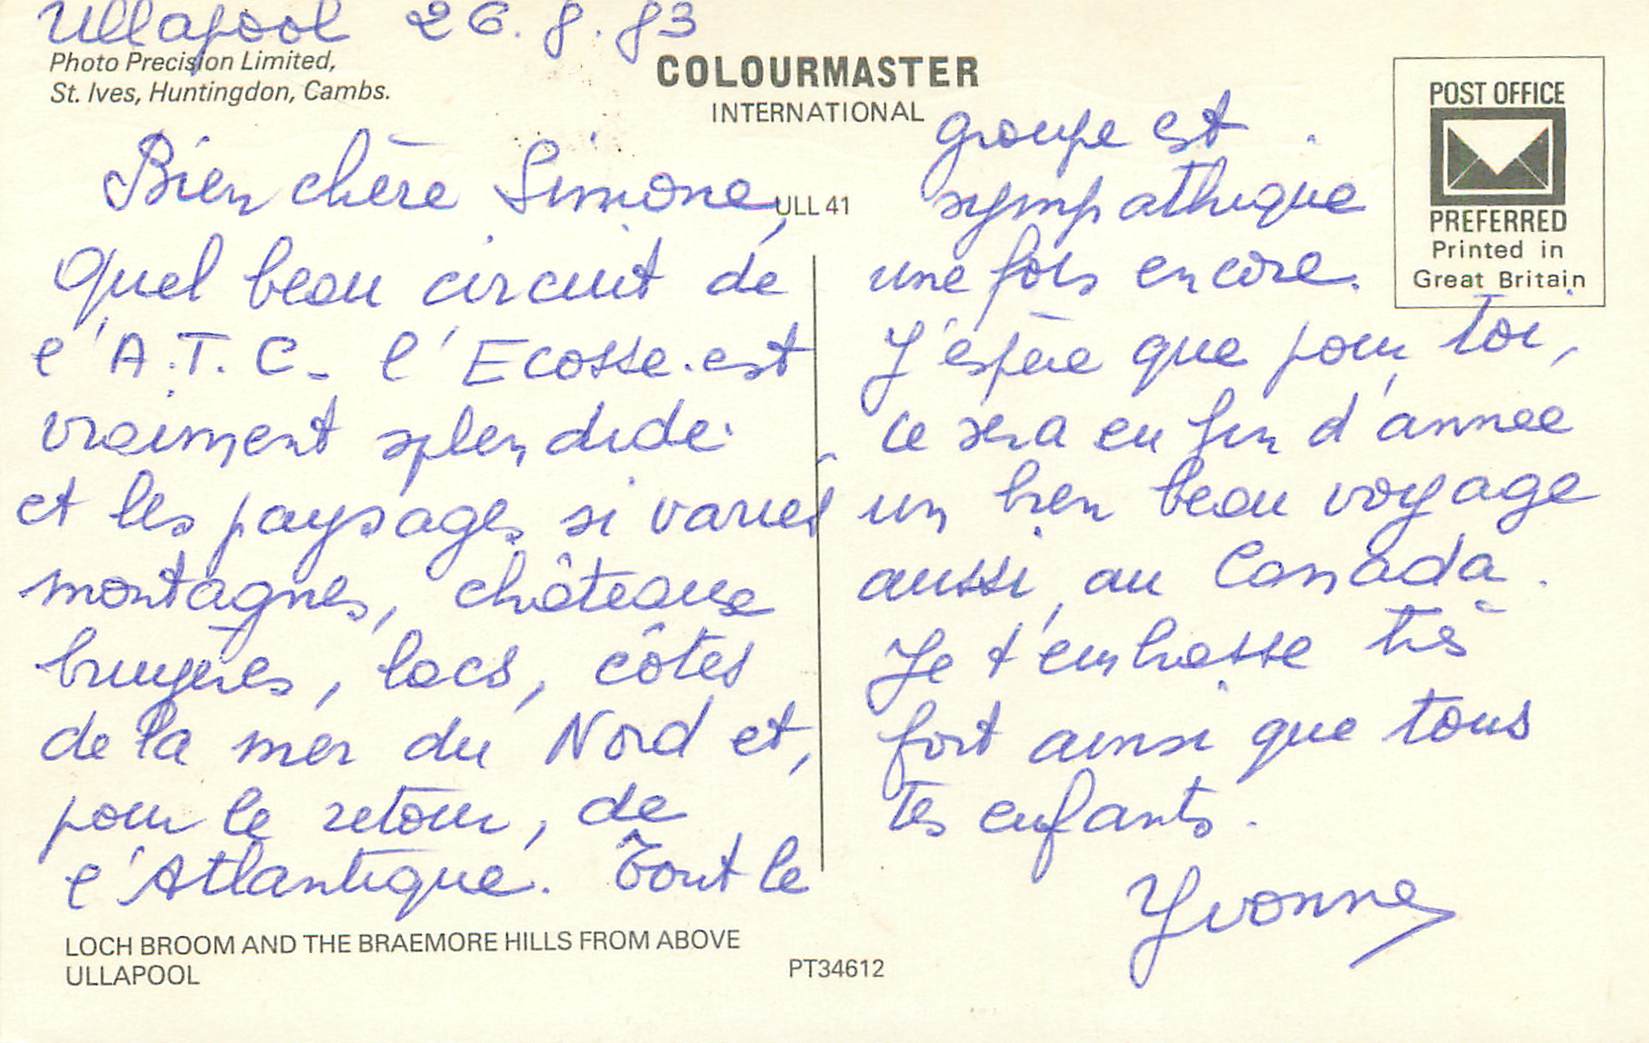 Ullapool 26.8.83
Photo Precision Limited,
St. Ives, Huntingdon, Cambs.
COLOURMASTER
INTERNATIONAL
POST OFFICE
PREFERRED
Printed in
Great Britain
ULL 41
Bien chère Simone,
Quel beau circuit de
l'A.T.C. l'Ecosse est
vraiment splendide
et les paysages si variés
montagnes, châteaux
bruyères, lacs, côtes
de la mer du Nord et,
pour le retour, de
l'Atlantique. Tout le
groupe est
sympathique
une fois encore.
J'espère que pour toi,
ce sera en fin d'année
un bien beau voyage
aussi, au Canada.
Je t'embrasse très
fort ainsi que tous
tes enfants.
Yvonne
LOCH BROOM AND THE BRAEMORE HILLS FROM ABOVE
ULLAPOOL
PT34612